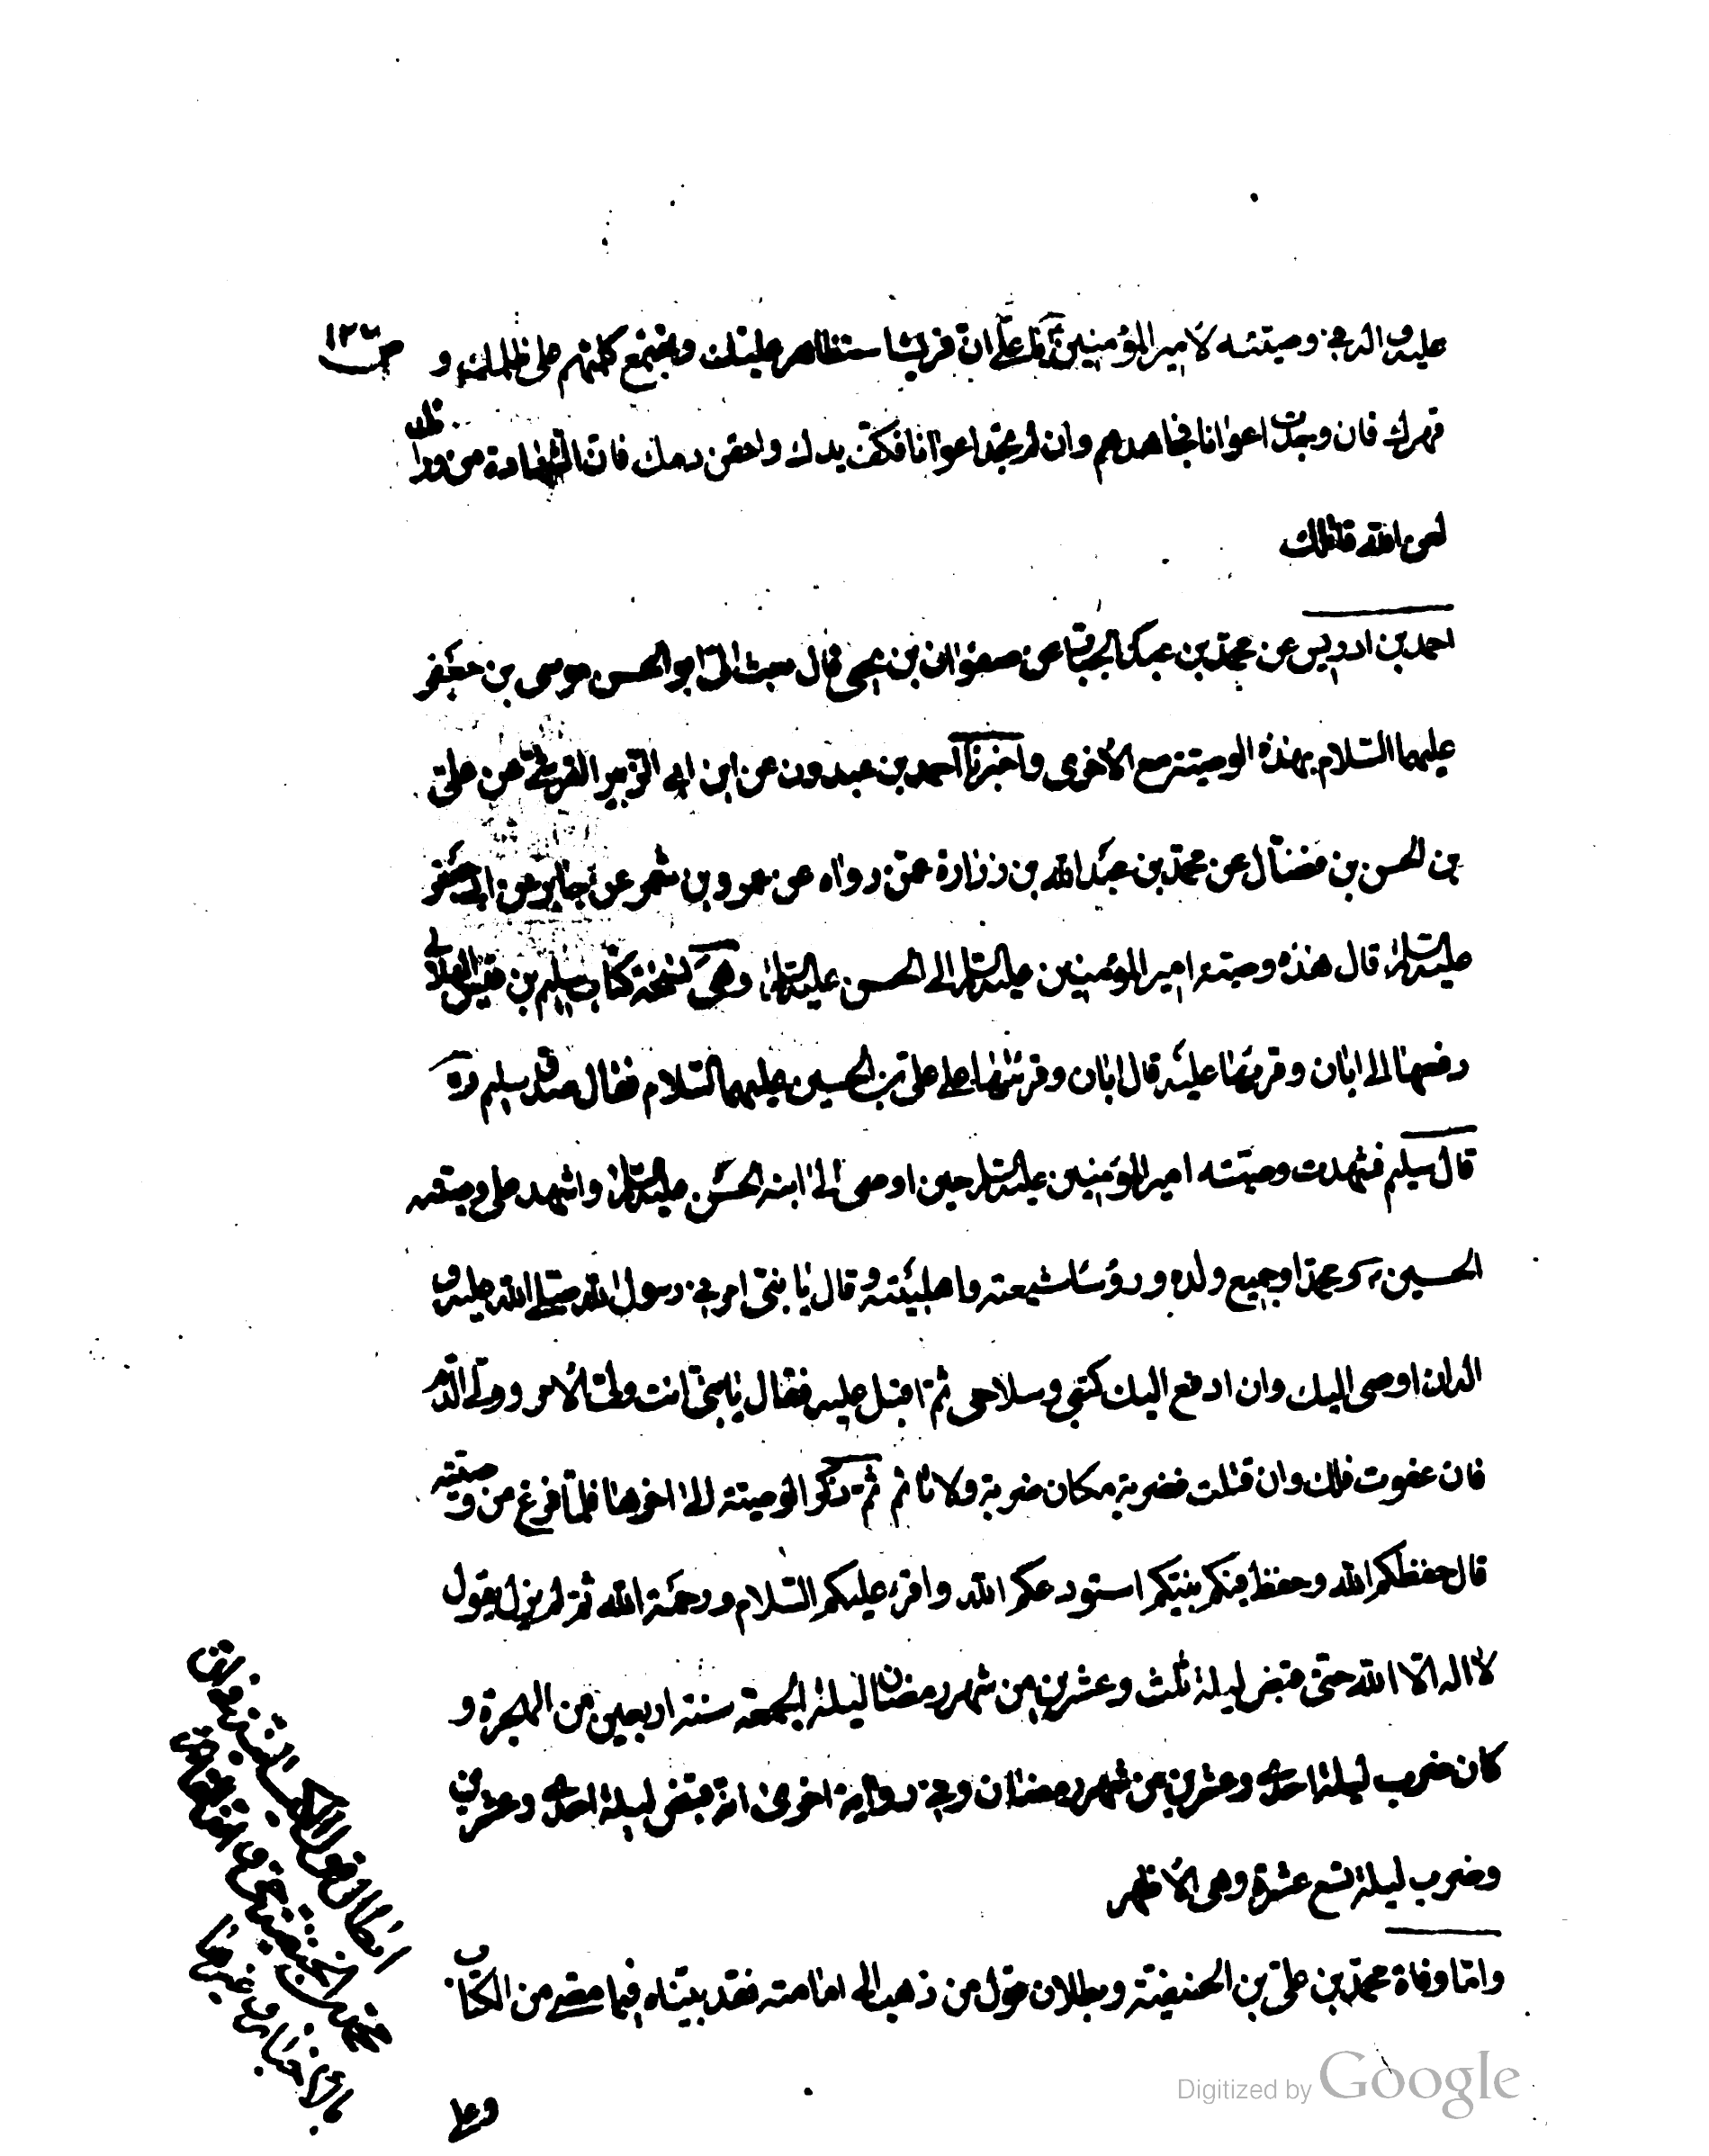 عليه واله في وصيته لأمير المؤمنين يا علي ان قريشا ستظاهر عليك وتجتمع كلمتهم على ظلمك و
ص ١٢٦
قهرك فان وجدت اعوانا فجاهدهم وان لم تجد اعوانا فكف يدك واحقن دمك فان الشهادة من وراءك
لعن الله قاتلك
احمد بن ادريس عن محمد بن عبد الجبار عن صفوان بن يحيى قال بعث الى ابو الحسن موسى بن جعفر
عليهما السلام بهذه الوصية مع الأخرى واخبرنا احمد بن عبدون عن ابن ابي الزبير القرشي عن علي
بن الحسن بن فضال عن محمد بن عبد الله بن زرارة عمن رواه عن عمرو بن شمر عن جابر عن ابي جعفر
عليه السلام قال هذه وصية امير المؤمنين عليه السلم الى الحسن عليه السلم وهى نسخة كتاب سليم بن قيس الهلالي
دفعها الى ابان وقرءها عليه قال ابان وقرئتها على علي بن الحسين عليهما السلام فقال صدق سليم ره
قال سليم فشهدت وصية امير المؤمنين عليه السلم حين اوصى الى ابنه الحسن عليه السلم واشهد على وصيته
الحسين ع ومحمدا وجميع ولده ورؤسا شيعته واهل بيته وقال يا بني امرني رسول الله صلى الله عليه و
اله ان اوصى اليك وان ادفع اليك كتبي وسلاحي ثم اقبل عليه فقال يا بني انت ولى الأمر وولى الدم
فان عفوت فلك وان قتلت فضربة مكان ضربة ولا تأثم ثم ذكر الوصية الى اخرها فلما فرغ من وصيته
قال حفظكم الله وحفظ فيكم نبيكم استودعكم الله واقرء عليكم السلام ورحمة الله ثم لم يزل يقول
لا اله الا الله حتى قبض ليلة ثلث وعشرين من شهر رمضان ليلة الجمعة سنة اربعين من الهجرة و
كان ضرب ليلة احدى وعشرين من شهر رمضان وفي رواية اخرى انه قبض ليلة احدى وعشرين
وضرب ليلة تسع عشرة وهى الأظهر
واما وفاة محمد بن علي بن الحنفية وبطلان قول من ذهب الى امامته فقد بيناه فيما مضى من الكتاب
وعلى
Digitized by Google